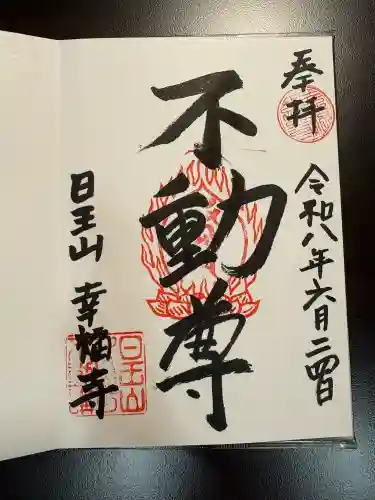 奉拝
令和八年六月二四日
不動尊
日王山 幸福寺
日王山